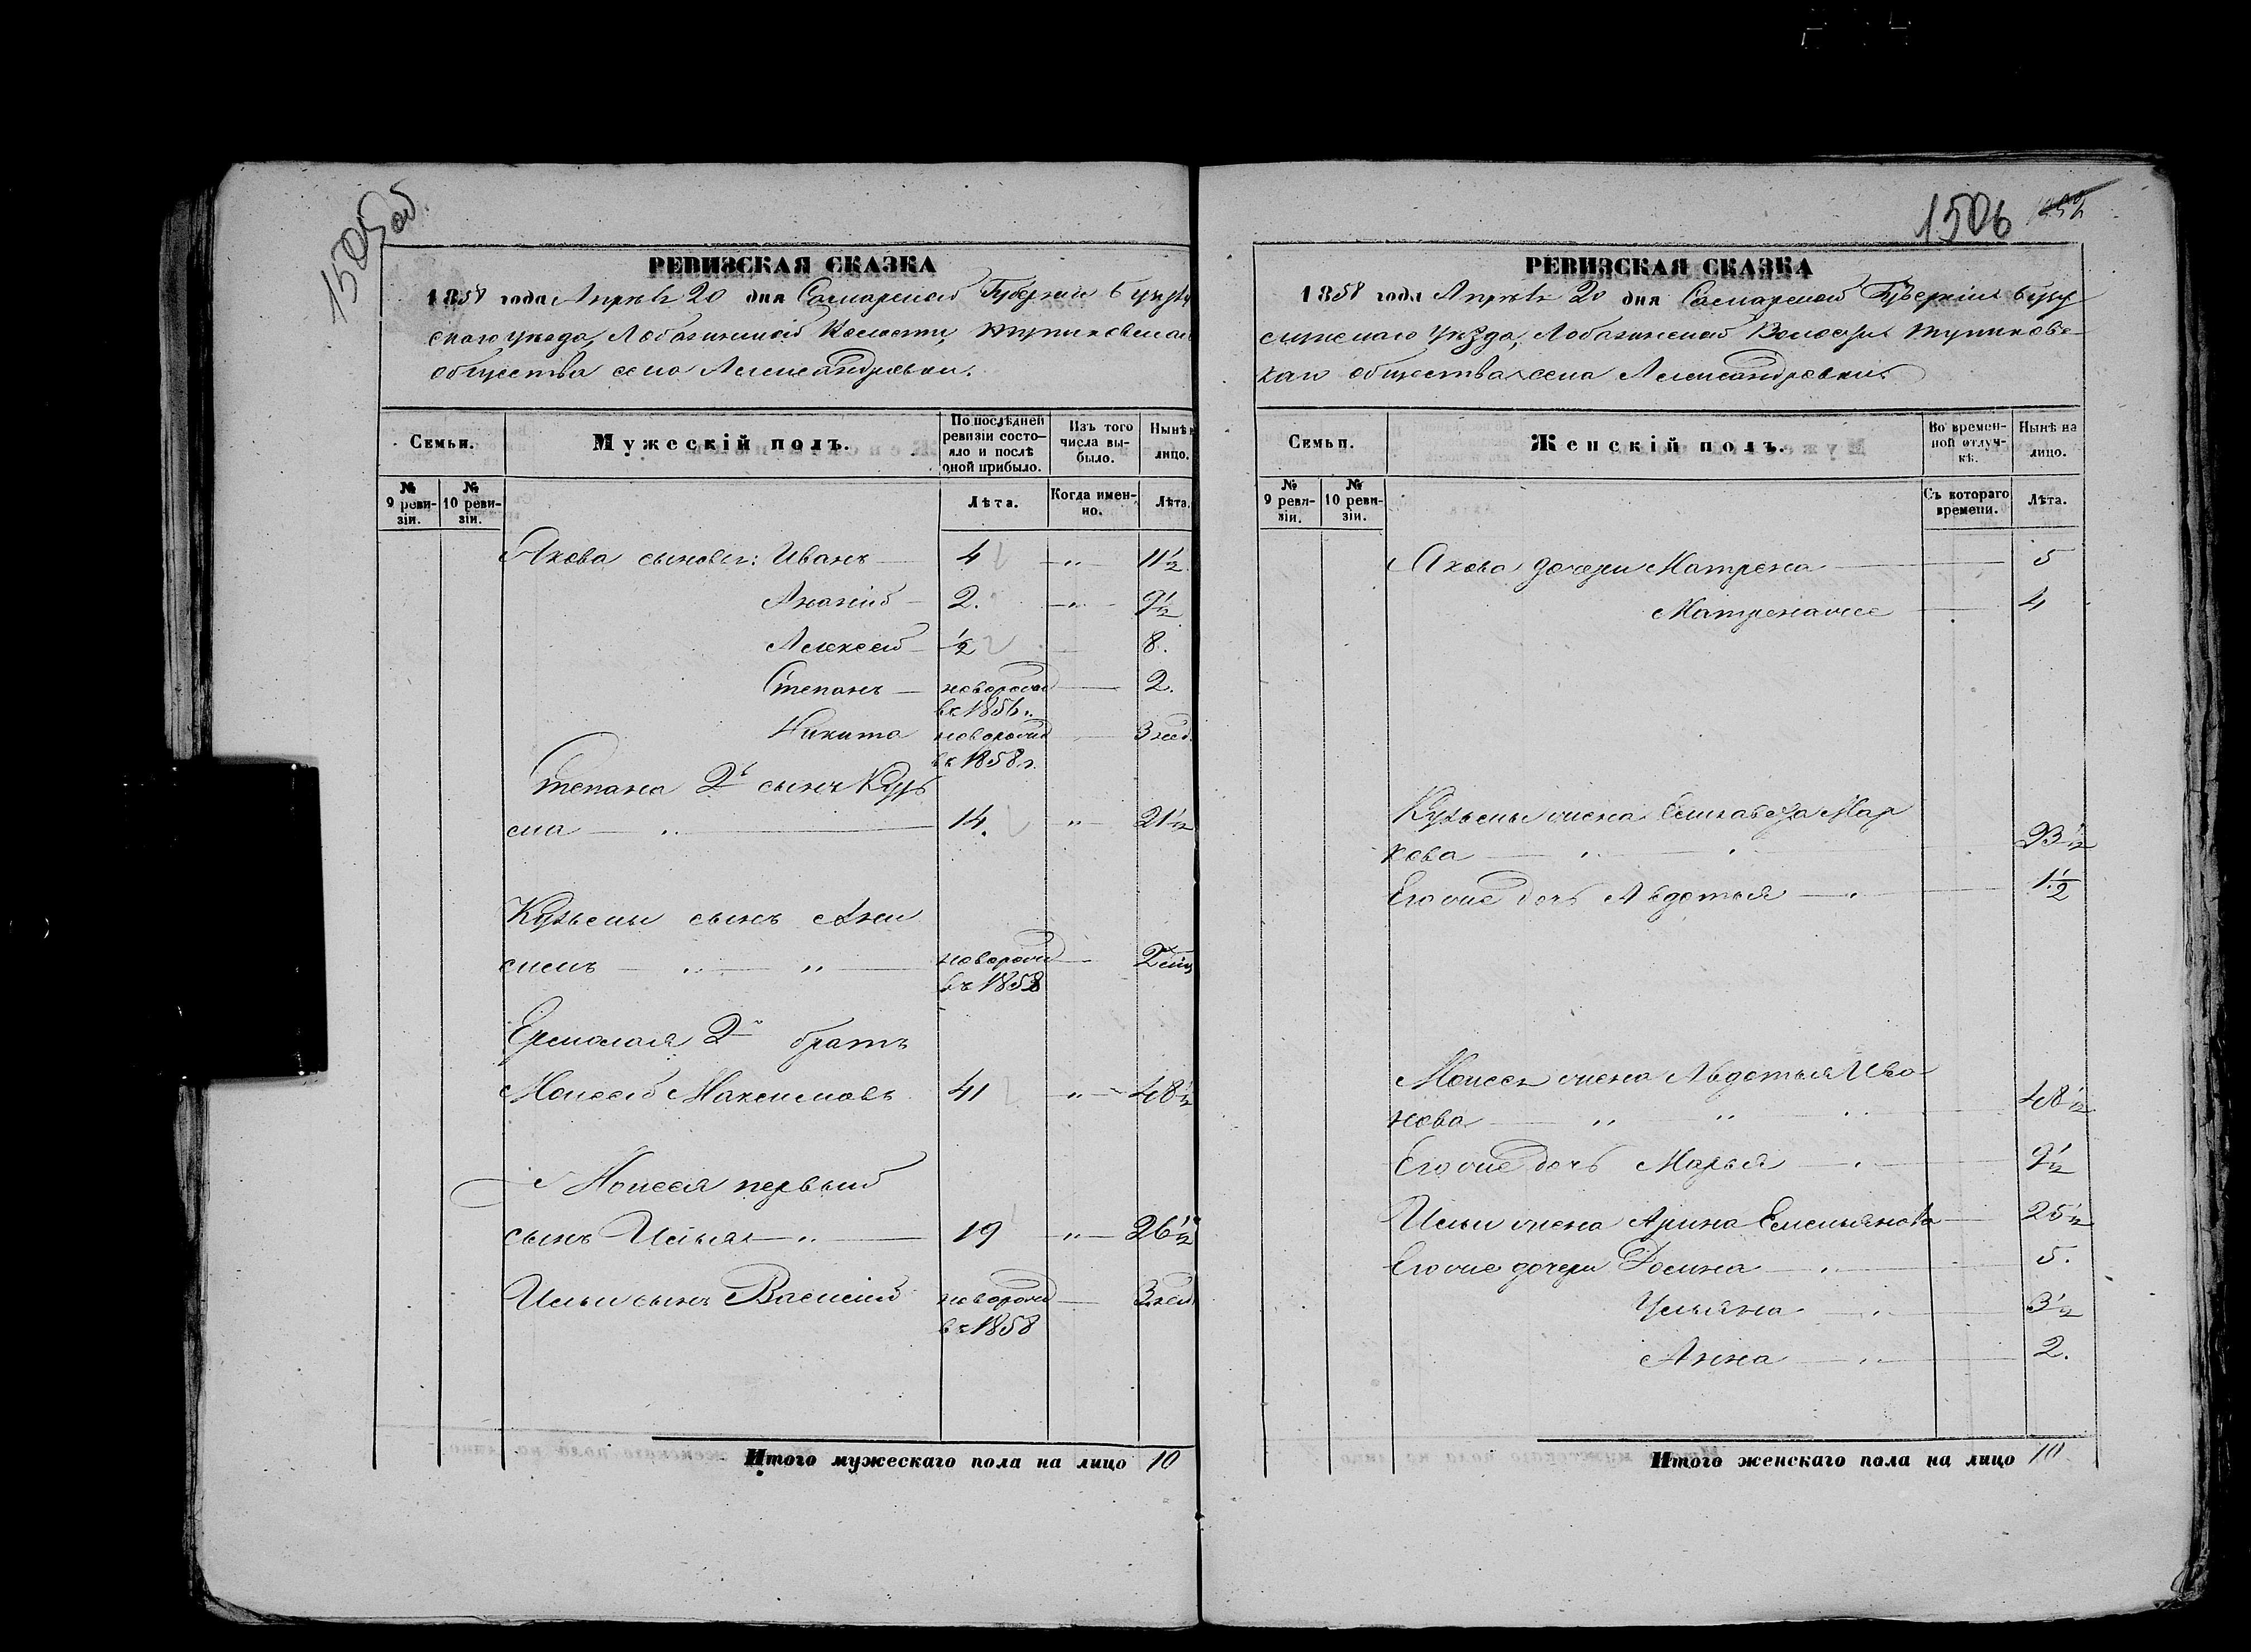 1505об
РЕВИЗСКАЯ СКАЗКА
1858 года Апрѣля 20 дня Самарской Губерніи Бузулу
скаго уѣзда, Лобазинской Волости,
общества села Александровки.
Семьи. Мужескій полъ. По послѣдней ревизіи состояло и послѣ оной прибыло. Изъ того числа выбыло. Нынѣ лицо.
№ 9 ревизіи. № 10 ревизіи. Лѣта. Когда именно. Лѣта.
Якова сыновья: Иванъ 4 „ 11½
Ананій 2. „ 9½
Алексей ½ 8.
Степанъ новорожд 2.
въ 1856 г.
Никита новорожд 3 нед.
въ 1858 г.
Степана 2й сынъ Кузь
ма „ 14. „ 21½
Кузьмы сынъ Ани
симъ „ „ новорожд 2
въ 1858
Ермолая 2й братъ
Моисей Максимовъ 41 „ 48½
Моисея первый
сынъ Илья „ 19 „ 26½
Ильи сынъ Василій новорожд 3 нед.
въ 1858
Итого мужескаго пола на лицо 10
1506
РЕВИЗСКАЯ СКАЗКА
1858 года Апрѣля 20 дня Самарской Губерніи Бузу
лукскаго Уѣзда, Лобазинской Волости
скаго общества села Александровки.
Семьи. Женскій полъ. Во временной отлучкѣ. Нынѣ на лицо.
№ 9 ревизіи. № 10 ревизіи. Съ котораго времени. Лѣта.
Якова дочери Матрена 5
Матрена же 4
Кузьмы жена Елизавета Мар
кова 23½
Его же дочь Авдотья 1½
Моисея жена Авдотья Ива
нова „ „ 48½
Его же дочь Марья 9½
Ильи жена Арина Емельянова 25½
Его же дочери Домна 5.
Ульяна 3½
Анна „ 2.
Итого женскаго пола на лицо 10